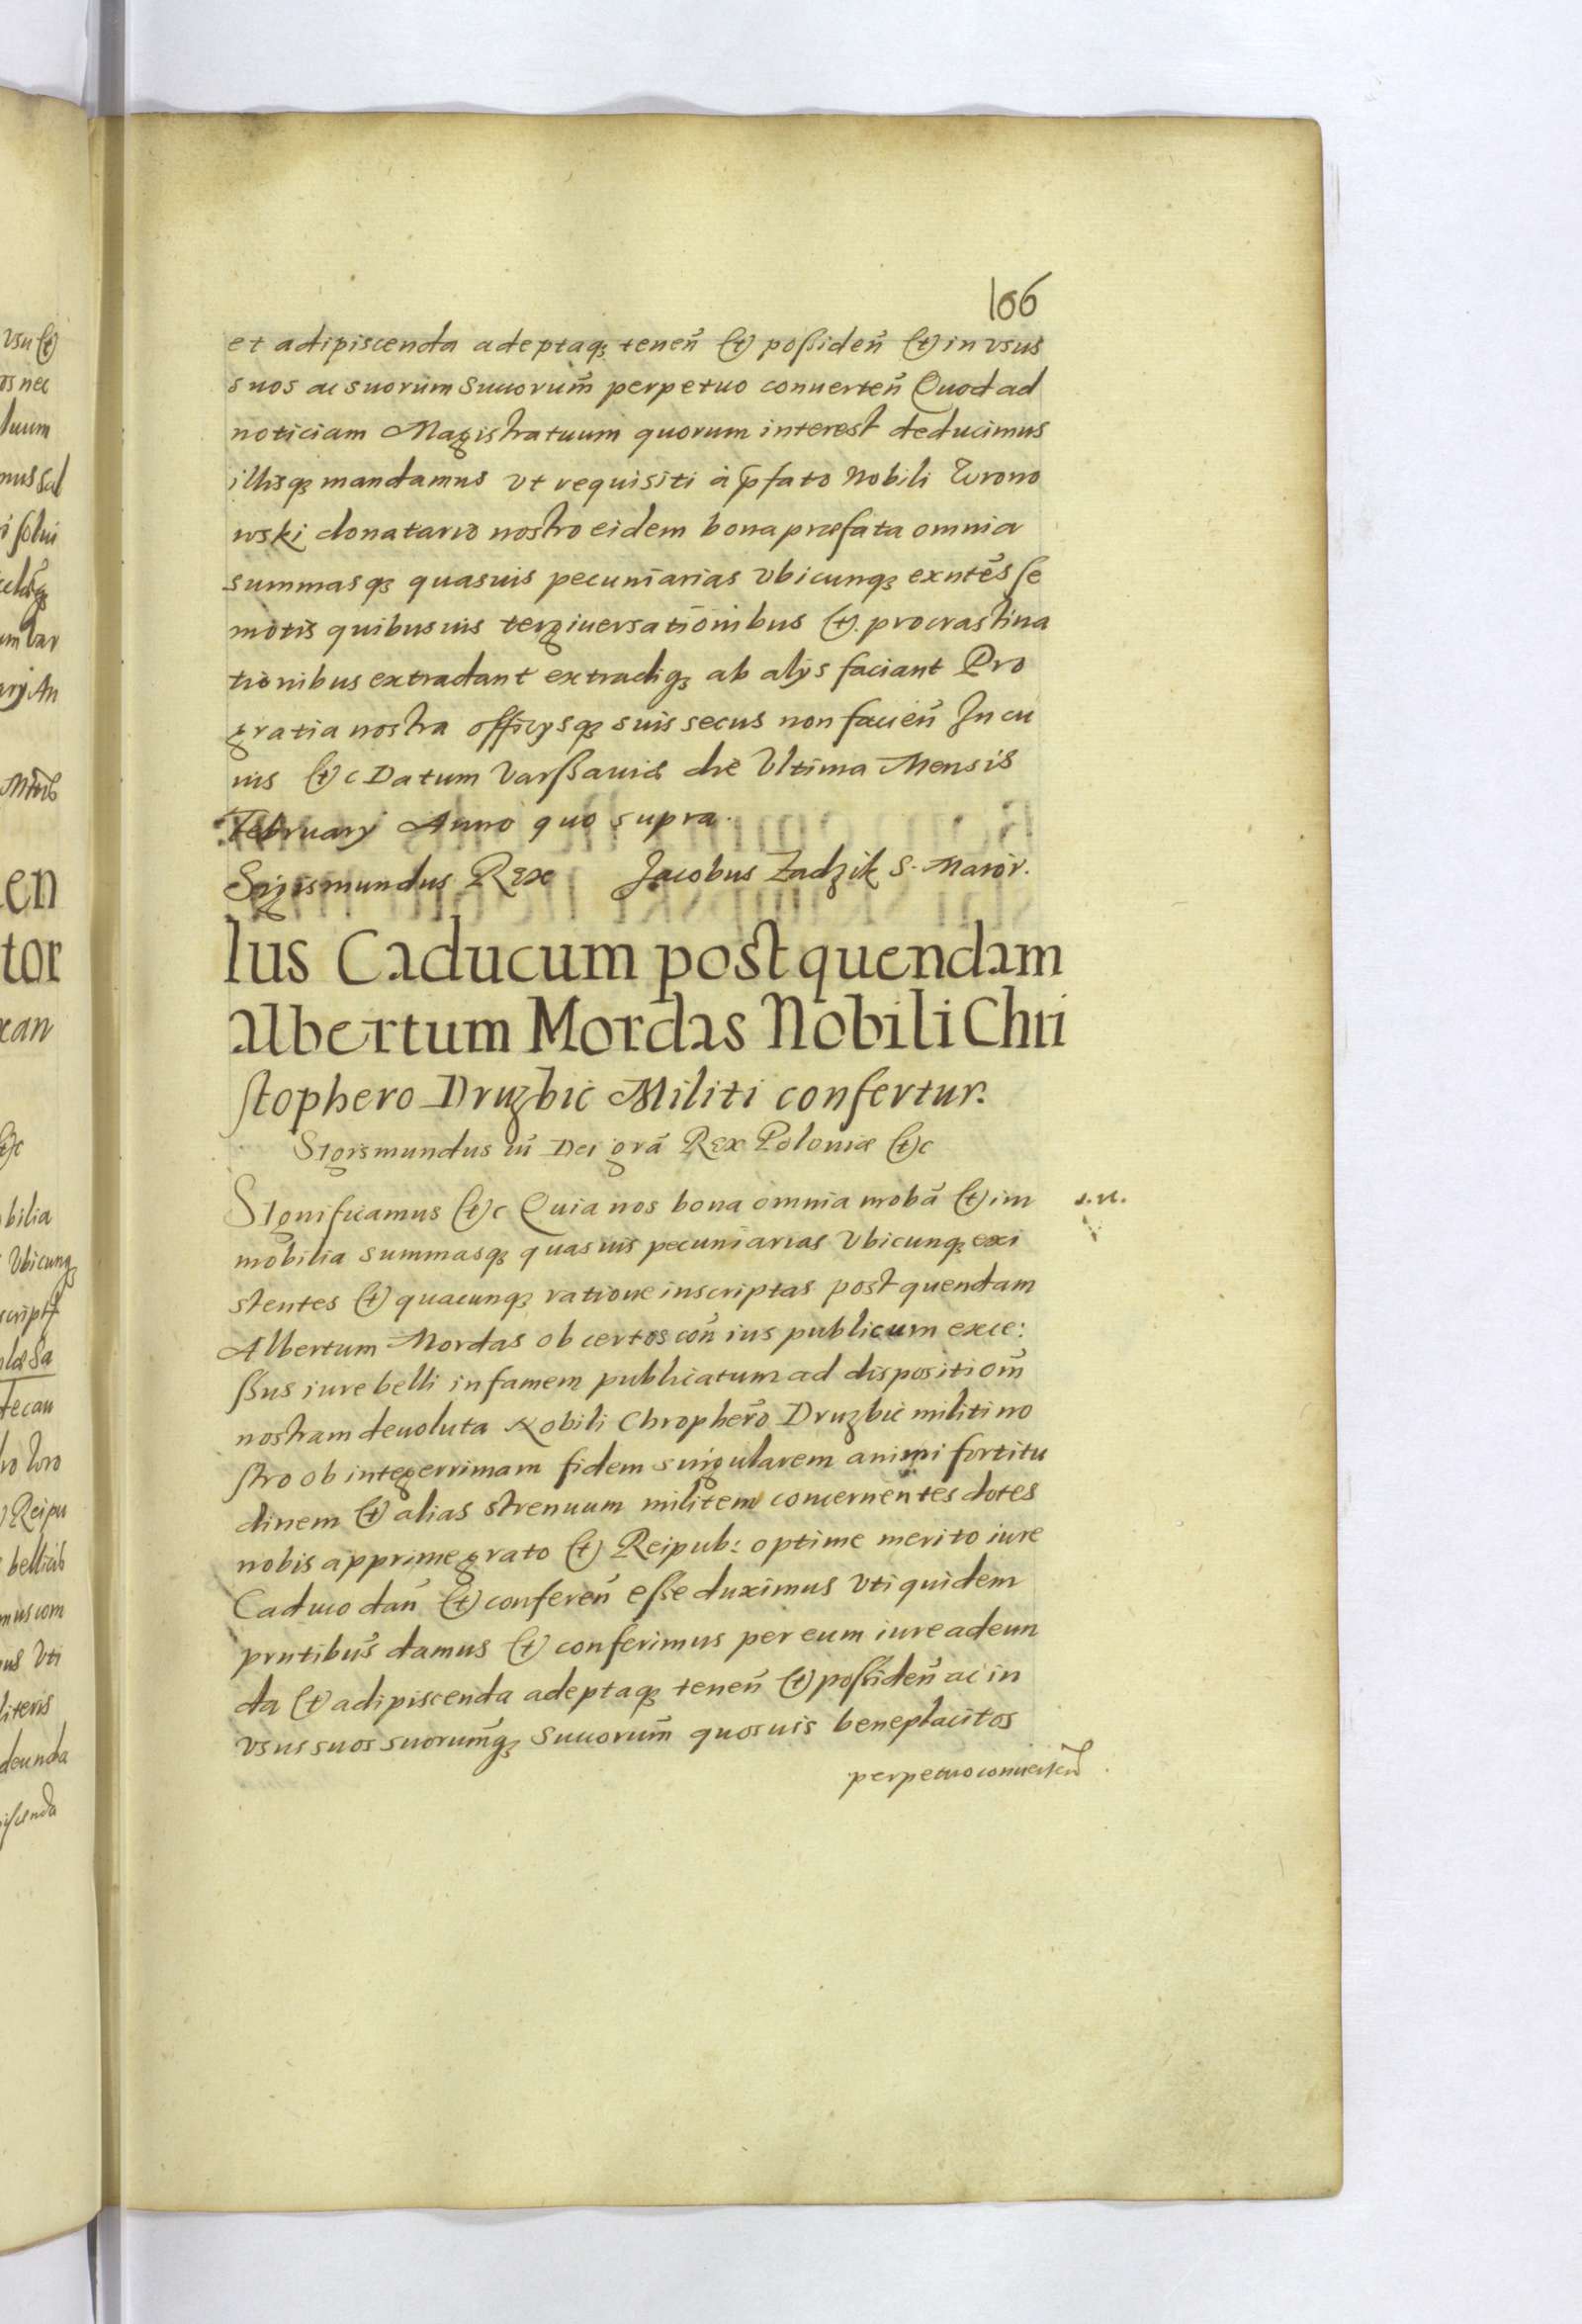 106
et adipiscenda adeptaqȝ teneñ & possideñ & in vsus
suos ac suorum Succorum̃ perpetuo conuerteñ Quod ad
noticiam Magistratuum quorum interest deducimus
illisqȝ mandamus vt requisiti à p̃fato Nobili Worono
wski donatario nostro eidem bona præfata omnia
summasqȝ quasuis pecuniarias vbicunqȝ exnte͂s se
motis quibusuis tergiuersationibus &. procrastina
tionibus extradant extradiqȝ ab alijs faciant Pro
gratia nostra officijsqȝ suis secus non facieñ In cu
ius &c Datum Varssauiæ die Vltima Mensis
February Anno quo supra.
Sigismundus Rex Jacobus Zadzik S. Maior.
Ius Caducum post quendam
Albertum Mordas Nobili Chri
stophero Druzbic Militi confertur.
Sigismundus iii̇̃ Dei grã Rex Poloniæ &c
Significamus &c Quia nos bona omnia mobã & im
mobilia summasqȝ quasuis pecuniarias vbicunqȝ exi
stentes & quacunqȝ ratione inscriptas post quendam
Albertum Mordas ob certos coñ ius publicum exce:
ssus iure belli infamem publicatum ad dispositiom̃
nostram deuoluta Nobili Chrophero͂ Druzbic militi no
stro ob integerrimam fidem singularem animi fortitu
dinem & alias strenuum militem concernentes dotes
nobis apprime grato & Reipub: optime merito iure
Caduco dañ & confereñ esse duximus vti quidem
pntibus͂ damus & conferimus per eum iure adeun
da & adipiscenda adeptaqȝ teneñ & possideñ ac in
vsus suos suorum̃qȝ Succorum̃ quosuis beneplacitos
perpetuo conuerteñ